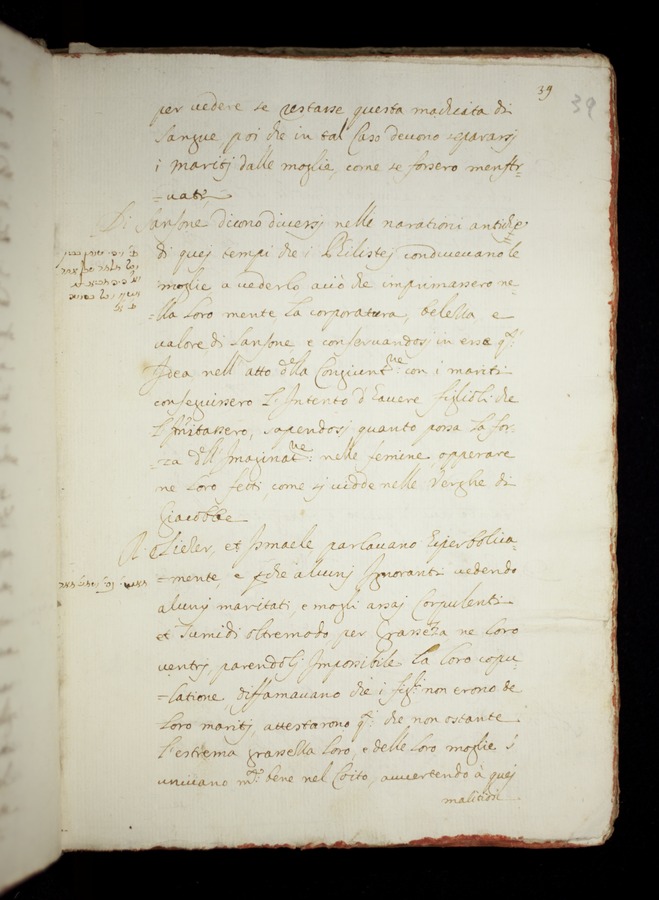 39
39
per vedere se restasse questa madicata di
sangue, poi che in tal Caso devono separarsj
i maritj dalle moglie, come se fossero menstr-
-uate
Di Sansone dicono diversj nelle narationi antiche
di quej tempi che i Philistej conducevano le
moglie a vederlo acciò che imprimassero ne-
-lla loro mente la corporatura, belessa e
valore di Sansone e conservandosj in esse q.ª
Idea nell'atto della Congiunt.ne con i mariti
conseguissero l'Intento d'havere figlioli che
l'Imitassero, sapendosj quanto possa la for-
-za dell'Imaginat.ve nelle femine, opperare
ne loro fetti come sj vidde nelle Verghe di
Giacobbe
R. Eliezer, et Ismaele parlavano Esperbolica-
-mente e perche alcunj Ignoranti vedendo
alcunj maritati, e mogli assaj Corpulenti
et Tumidi oltremodo per Grassezza ne loro
ventrj, parendolj Impossibile la loro copu-
-latione diffamavano che i figlj non erono de
loro maritj, attestarono q.i che non ostante
l'estrema grassezza loro, e delle loro moglie s'
univano m.to bene nel Coito, avvertendo à quej